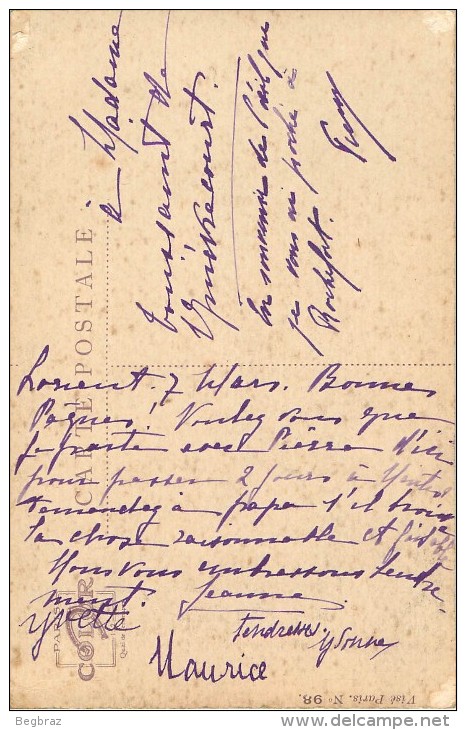 à Madame
Toussaint de
Quivrecourt.
En souvenir de l'ail que
je vous ai poché à
Rochefort.
CARTE POSTALE
Lorient. 7 Mars. Bonnes
Pâques! Voulez vous que
je parte avec Pierre d'ici
pour passer 2 jours à
demandez à papa s'il trouve
la chose raisonnable et
Nous vous embrassons tendre-
ment. Jeanne
Yvette
tendresses Yvonne
Maurice
COLOR
Visé Paris. No 98.
Begbraz